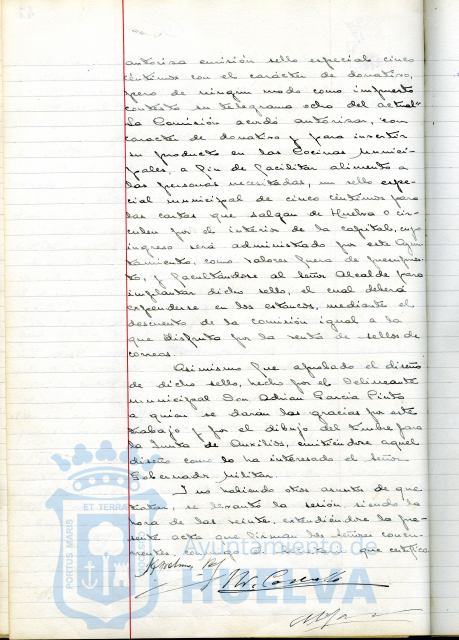 autoriza emisión sello especial cinco
céntimos con el carácter de donativo,
pero de ningun modo como impuesto
contesto su telegrama ocho del actual"
La Comisión acordó autorizar, con
caracter de donativo y para invertir
su producto en las Cocinas Munici-
pales, a fin de facilitar alimento a
las personas necesitadas, un sello espe-
cial municipal de cinco céntimos para
las cartas que salgan de Huelva o cir-
culen por el interior de la capital, cuyo
ingreso será administrado por este Ayun-
tamiento, como valores fuera de presupues-
to, y facultándose al señor Alcalde para
implantar dicho sello, el cual deberá
expenderse en los estancos, mediante el
descuento de la comisión igual a la
que disfruta por la venta de sellos de
correos.
Asimismo fue aprobado el diseño
de dicho sello, hecho por el Delineante
municipal Don Adrian Garcia Pinto
a quien se darán las gracias por este
trabajo y por el dibujo del timbre para
la Junta de Auxilios, emitiéndose aquel
diseño como lo ha interesado el señor
Gobernador Militar.
Y no habiendo otros asuntos de que
tratar, se levantó la sesión, siendo la
hora de las veinte, extendiéndose la pre-
sente acta que firman los señores concu-
rrentes conmigo el Secretario que certifico.
PORTUS MARIS ET TERRAE
Ayuntamiento de
HUELVA